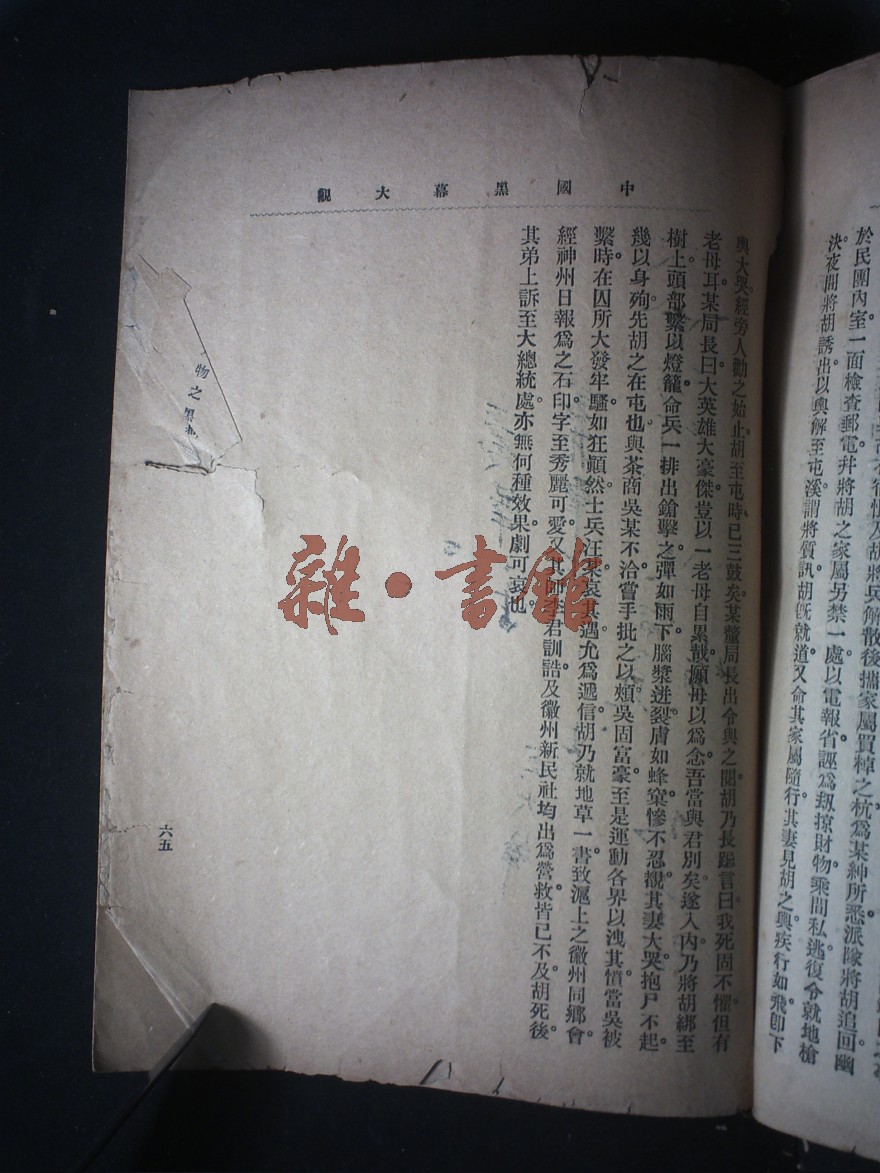 中國黑幕大觀
於民團內室一面檢查郵電幷將胡之家屬另禁一處以電報省誣爲刼掠財物乘間私逃復令就地槍
決夜間將胡誘出以輿解至屯溪謂將質訊胡旣就道又命其家屬隨行其妻見胡之輿疾行如飛卽下
輿大哭。經旁人勸之始止。胡至屯時已三鼓矣。某董局長出令與之閱。胡乃長跽言曰我死固不懼但有
老母耳某局長曰大英雄大豪傑豈以一老母自累哉願毋以爲念吾當與君別矣。遂入內。乃將胡綁至
樹上頭部繫以燈籠命兵一排出鎗擊之。彈如雨下。腦漿迸裂膚如蜂窠慘不忍覩其妻大哭抱尸不起
幾以身殉。先胡之在屯也。與茶商吳某不洽。嘗手批之以頰。吳固富豪至是運動各界以洩其憤。當吳被
繫時在囚所大發牢騷如狂顚然士兵汪某哀其遇允爲遞信。胡乃就地草一書致滬上之徽州同鄉會。
經神州日報爲之石印字至秀麗可愛又其君訓誥及徽州新民社均出爲營救皆已不及胡死後
其弟上訴至大總統處。亦無何種效果劇可哀也
物之黑
六五
雜·書館